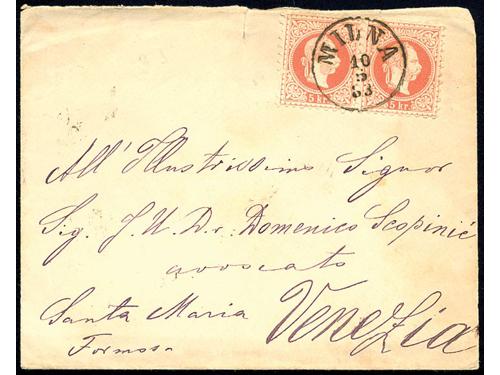 MILNA
10
5
83
5 kr.
5 kr.
All' Illustrissimo Signor
Sig. J. U. Dr. Domenico Scopinić
avvocato
Santa Maria
Formosa
Venezia